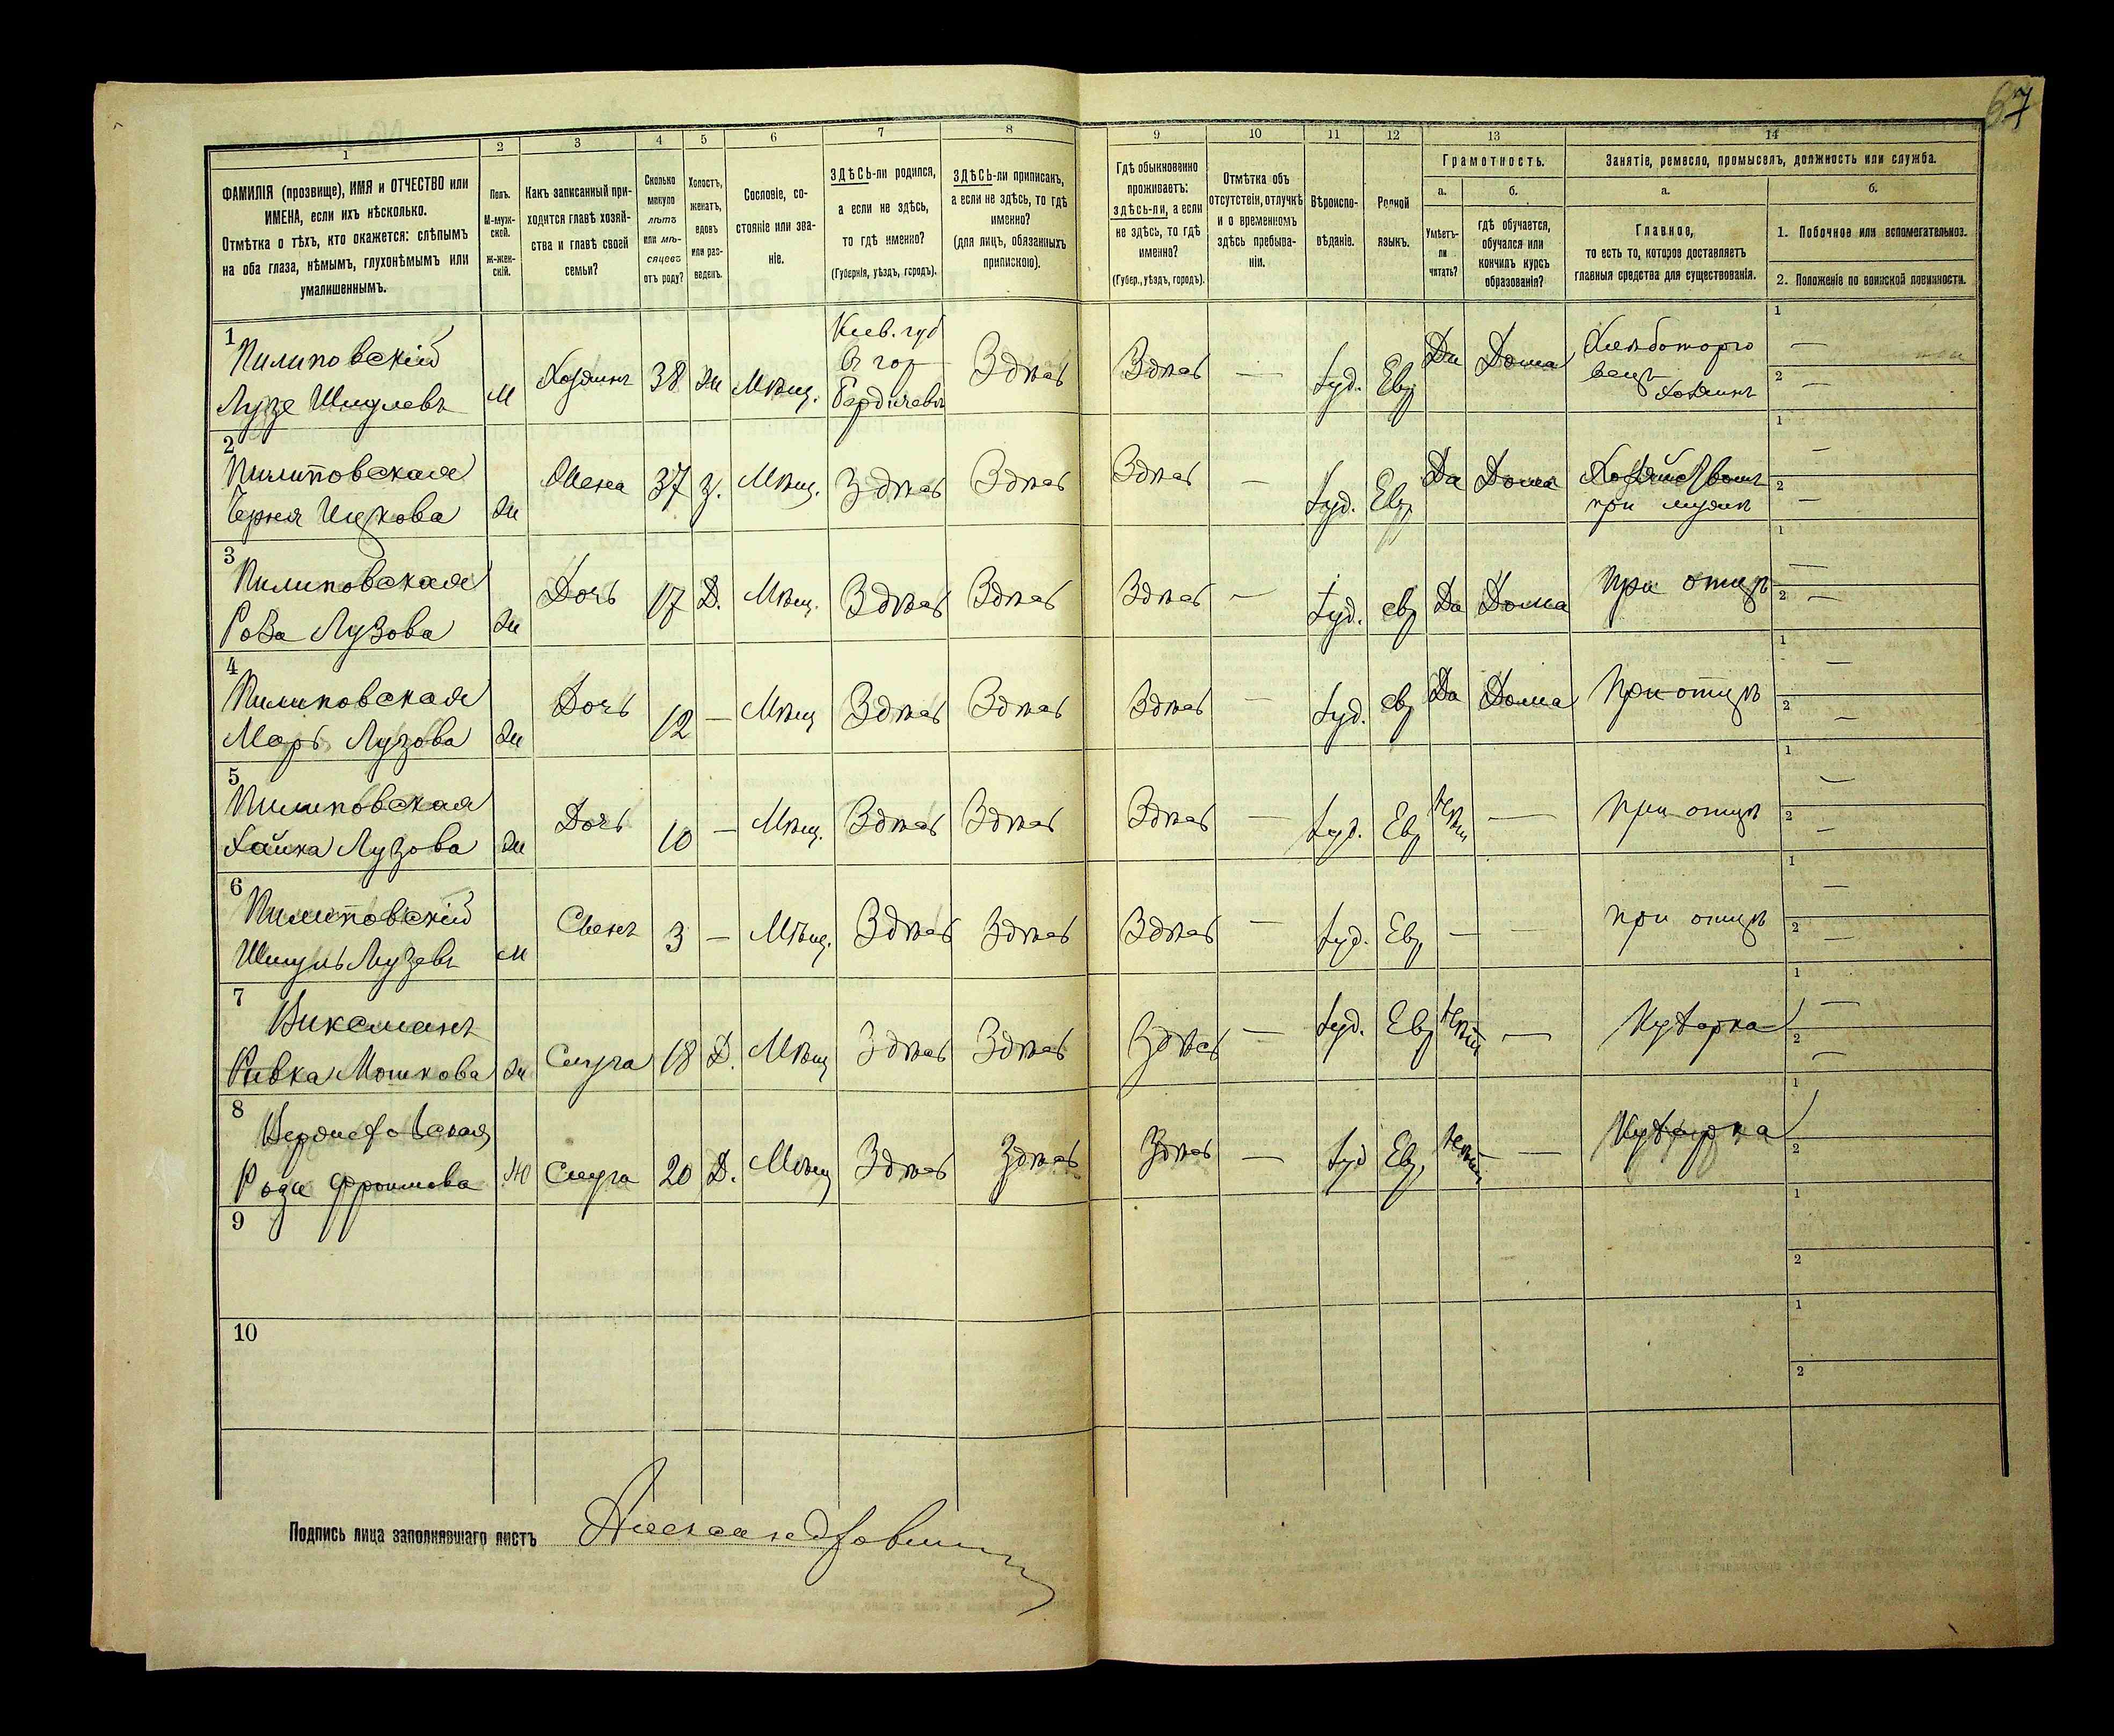 67
1
2
3
4
5
6
7
8
9
10
11
12
13
14
ФАМИЛІЯ (прозвище), ИМЯ и ОТЧЕСТВО или
ИМЕНА, если ихъ нѣсколько.
Отмѣтка о тѣхъ, кто окажется: слѣпымъ
на оба глаза, нѣмымъ, глухонѣмымъ или
умалишеннымъ.
Полъ.
М-муж-
ской.
Ж-жен-
скій.
Какъ записанный при-
ходится главѣ хозяй-
ства и главѣ своей
семьи?
Сколько
минуло
лѣтъ
или мѣ-
сяцевъ
отъ роду?
Холостъ,
женатъ,
вдовъ
или раз-
веденъ.
Сословіе, со-
стояніе или зва-
ніе.
ЗДѢСЬ-ли родился,
а если не здѣсь,
то гдѣ именно?
(Губернія, уѣздъ, городъ).
ЗДѢСЬ-ли приписанъ,
а если не здѣсь, то гдѣ
именно?
(для лицъ, обязанныхъ
припискою).
Гдѣ обыкновенно
проживаетъ:
здѣсь-ли, а если
не здѣсь, то гдѣ
именно?
(Губер., уѣздъ, городъ).
Отмѣтка объ
отсутствіи, отлучкѣ
и о временномъ
здѣсь пребыва-
ніи.
Вѣроиспо-
вѣданіе.
Родной
языкъ.
Грамотность.
а.
б.
Умѣетъ-
ли
читать?
гдѣ обучается,
обучался или
кончилъ курсъ
образованія?
Занятіе, ремесло, промыселъ, должность или служба.
а.
б.
Главное,
то есть то, которое доставляетъ
главныя средства для существованія.
1. Побочное или вспомогательное.
2. Положеніе по воинской повинности.
1
Пилиповскій
Лузе Шмулевъ
М
Хозяинъ
38
Ж
Мѣщ.
Кіев. губ
В гор
Бердичевъ
Здѣсь
Здѣсь
—
Іуд.
Евр
Да
Дома
Хлѣботорго
вецъ
Хозяинъ
1
—
2
—
2
Пилиповская
Черня Ицкова
Ж
Жена
37
З.
Мѣщ.
Здѣсь
Здѣсь
Здѣсь
—
Іуд.
Евр
Да
Дома
при мужѣ
1
—
2
—
3
Пилиповская
Роза Лузова
Ж
Дочь
17
Д.
Мѣщ.
Здѣсь
Здѣсь
Здѣсь
—
Іуд.
евр
Да
Дома
При отцѣ
1
—
2
—
4
Пилиповская
Марь Лузова
Ж
Дочь
12
—
Мѣщ
Здѣсь
Здѣсь
Здѣсь
—
Іуд.
евр
Да
Дома
При отцѣ
1
—
2
—
5
Пилиповская
Хайка Лузова
Ж
Дочь
10
—
Мѣщ.
Здѣсь
Здѣсь
Здѣсь
—
Іуд.
Евр
Нѣт
—
При отцѣ
1
—
2
—
6
Пилиповскій
Шмуль Лузевъ
М
Сынъ
3
—
Мѣщ.
Здѣсь
Здѣсь
Здѣсь
—
Іуд.
Евр
—
—
при отцѣ
1
—
2
—
7
Виксманъ
Ривка Мошкова
Ж
Слуга
18
Д.
Мѣщ
Здѣсь
Здѣсь
Здѣсь
—
Іуд.
Евр
Нѣт
—
Кухарка
1
—
2
—
8
Рози Фроимова
Ж
Слуга
20
Д.
Мѣщ
Здѣсь
Здѣсь
Здѣсь
—
Іуд
Евр
Нѣт
—
Кухарка
1
2
9
1
2
10
1
2
Подпись лица заполнявшаго листъ